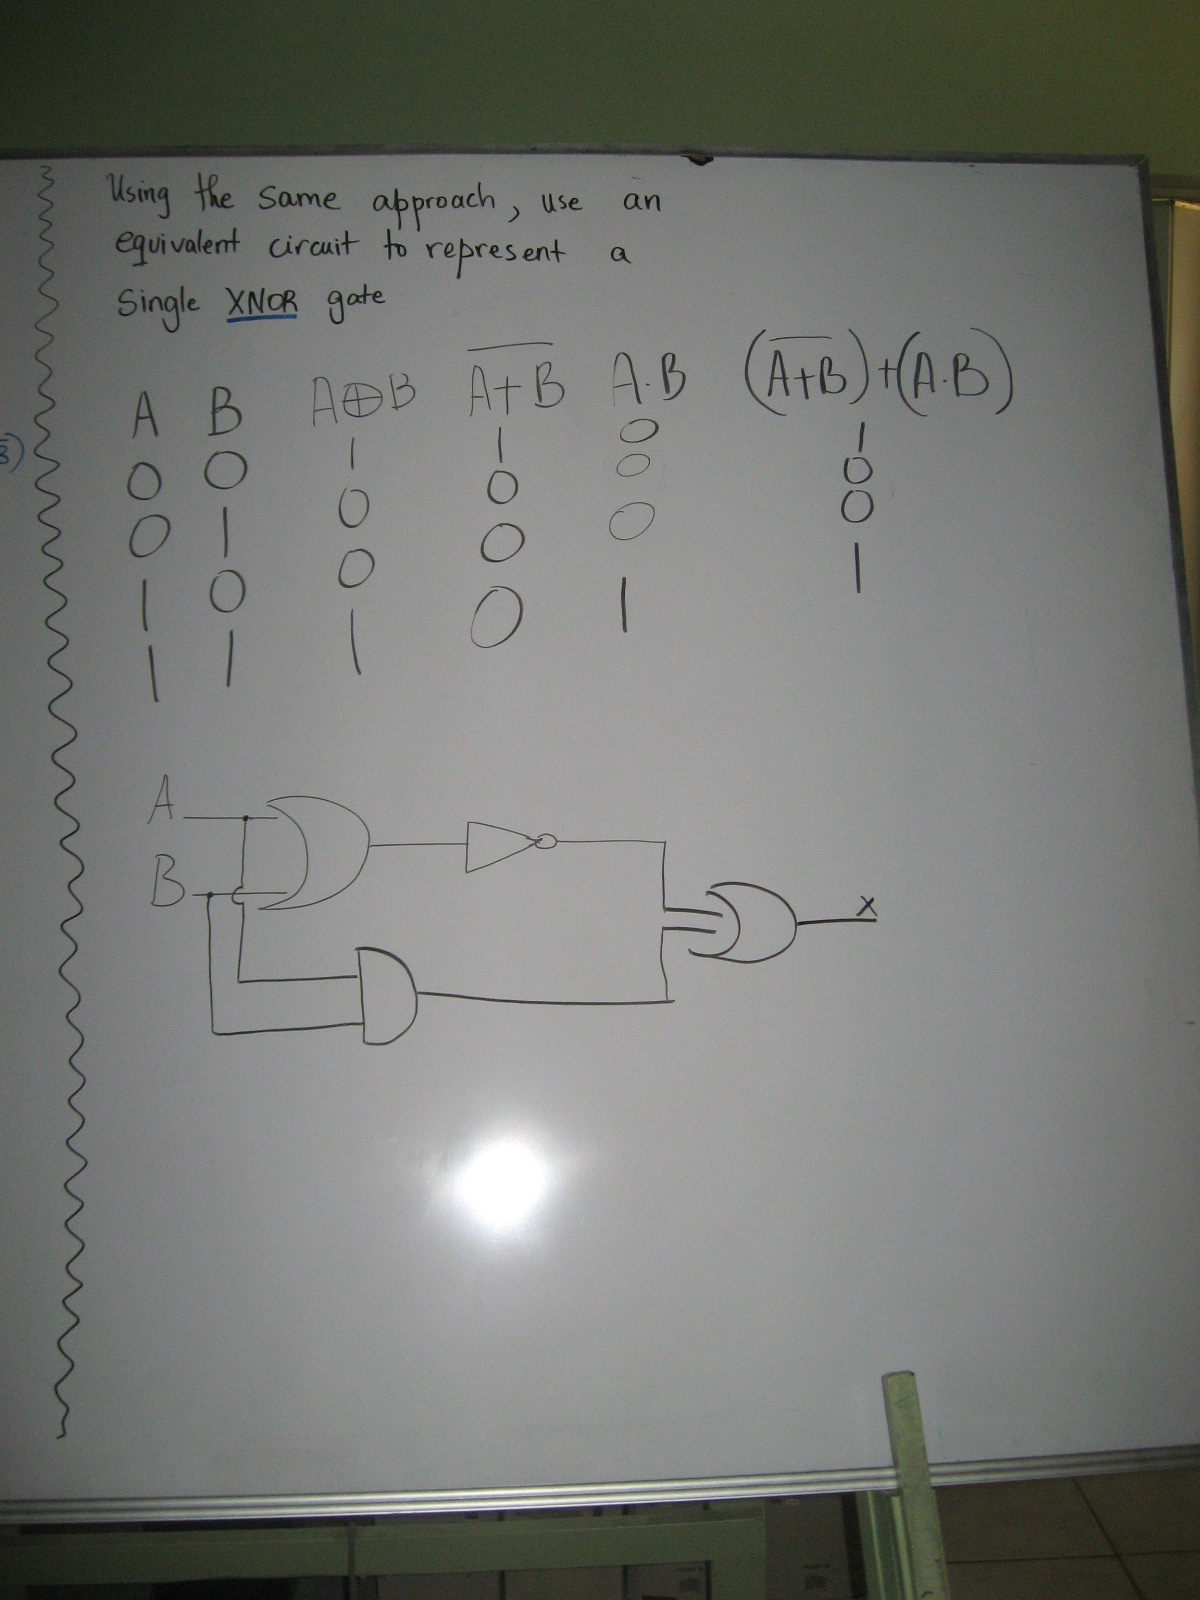 Using the same approach, use an
equivalent circuit to represent a
Single XNOR gate
A B A⊕B A̅+̅B̅ A.B (A̅+̅B̅)+(A.B)
0 0 1 1 0 1
0 1 0 0 0 0
1 0 0 0 0 0
1 1 1 0 1 1
A
B
X